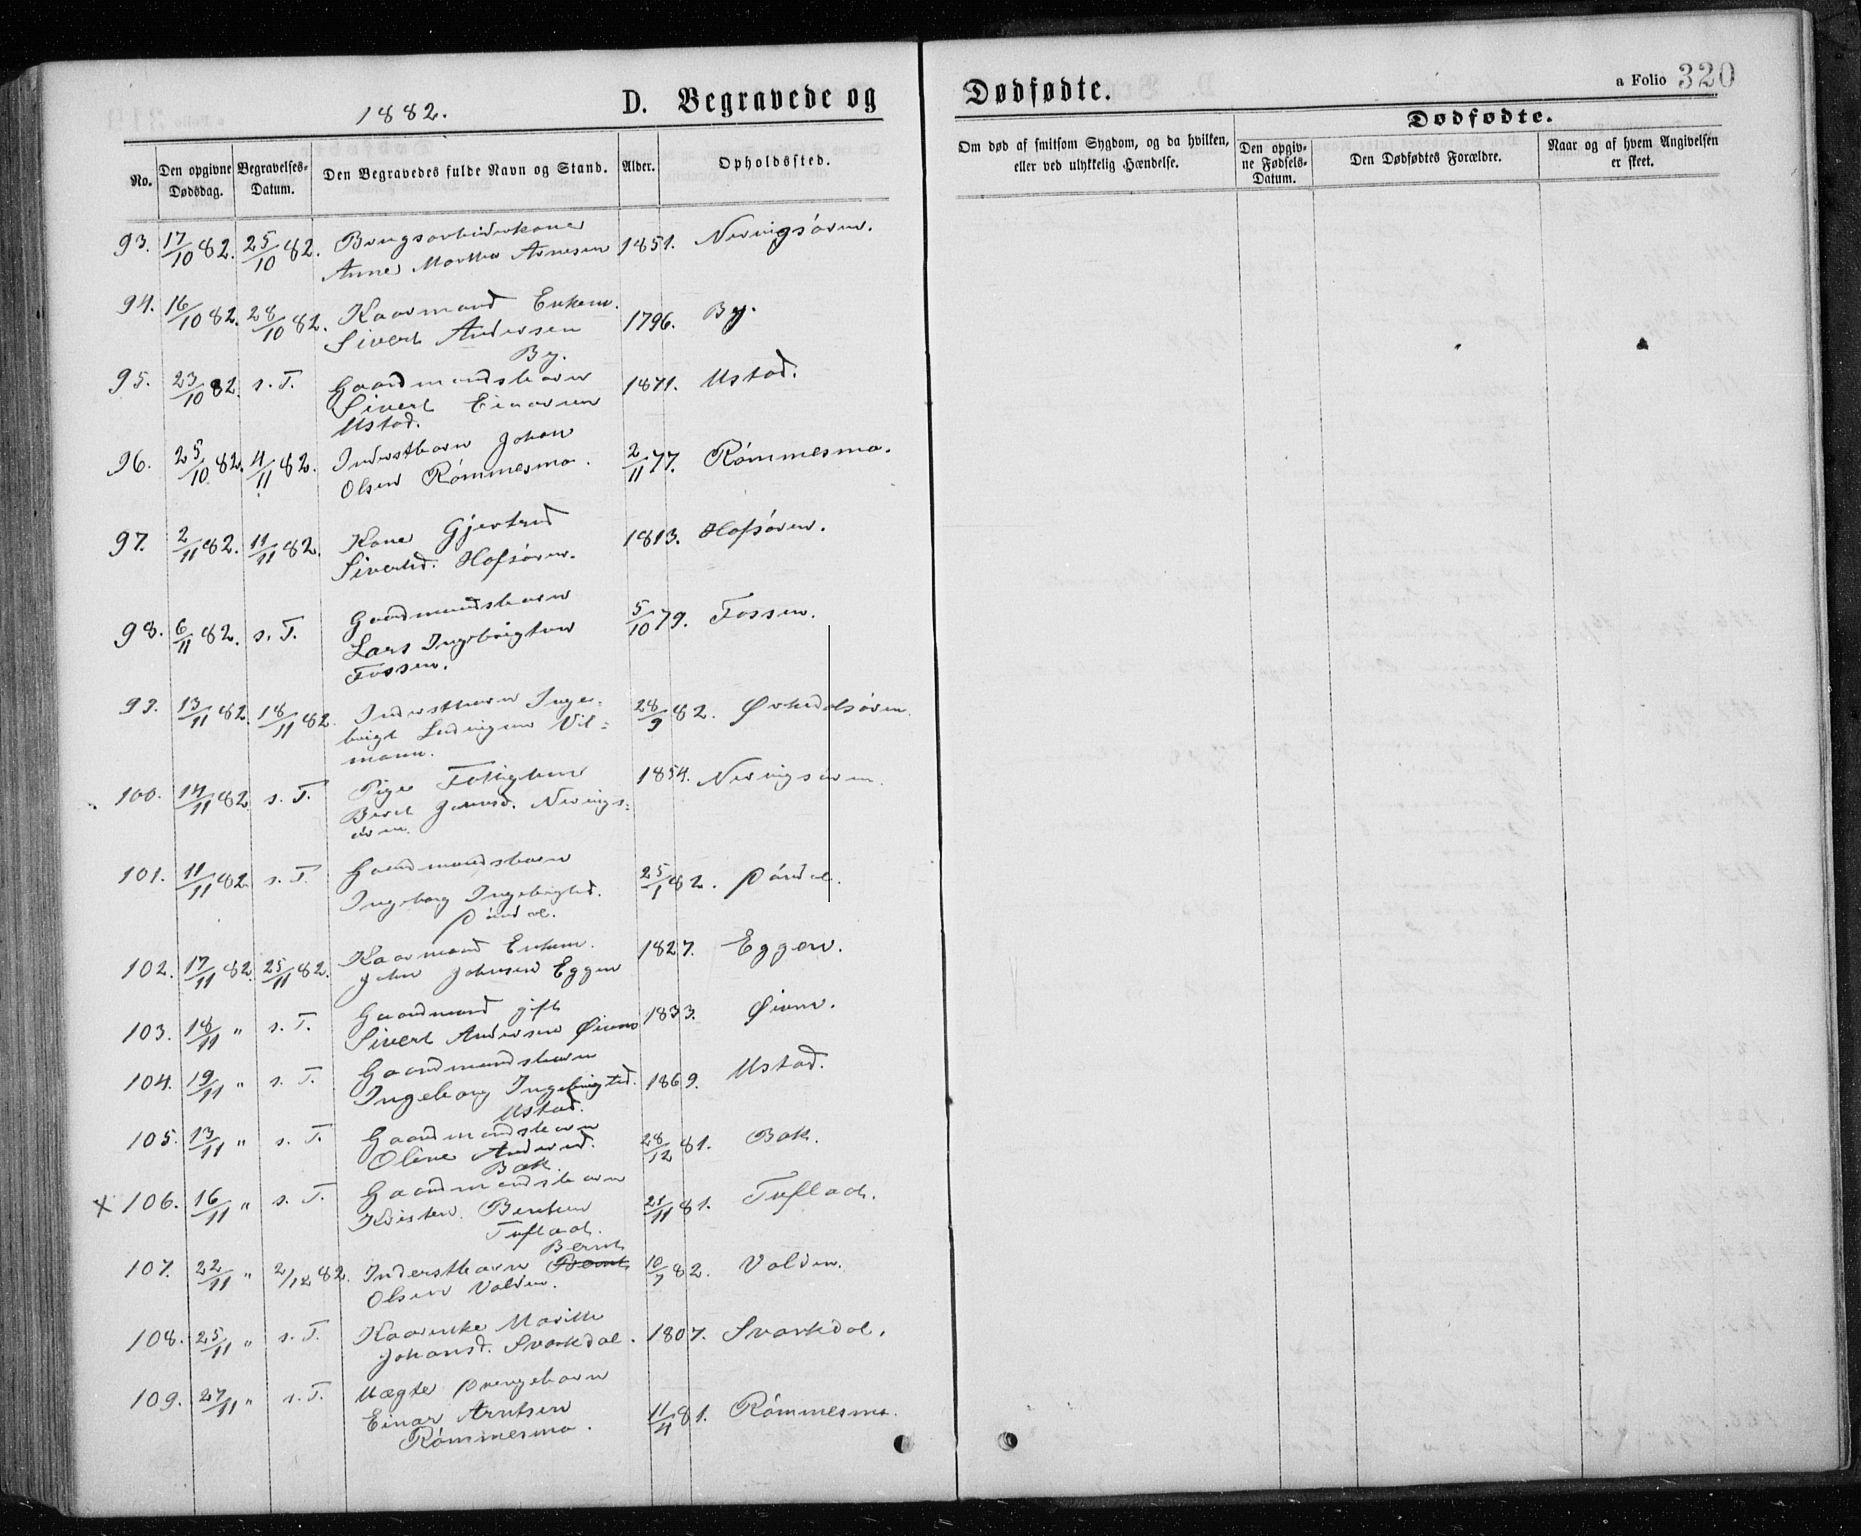 1882.
D. Begravede og
Dødfødte.
a Folio 320
No.
Den opgivne Dødsdag.
Begravelses-Datum.
Den Begravedes fulde Navn og Stand.
Alder.
Opholdssted.
Om død af smitsom Sygdom, og da hvilken, eller ved ulykkelig Hændelse.
Dødfødte.
Den opgivne Fødsels-Datum.
Den Dødfødtes Forældre.
Naar og af hvem Angivelsen er skeet.
93. 17/10 82. 25/10 82. Brugsarbeiderkone 1851.
Anne Martha Arnesen
94. 16/10 82. 28/10 82. Kaarmand Enkem. 1796. By.
Sivert Andersen
By.
95. 23/10 82. s. T. Gaardmandsbarn 1871. Ustad.
Sivert Einarsen
Ustad.
96. 25/10 82. 4/11 82. Inderstbarn Johan 2/11 77. Rømmesmo.
Olsen Rømmesmo.
97. 2/11 82. 11/11 82. Kone Gjertrud 1813. Hofsøren.
Sivertsd. Hofsøren.
98. 6/11 82. s. T. Gaardmandsbarn 5/10 79. Fossen.
Lars Ingebrigtsen
Fossen.
99. 13/11 82. 18/11 82. Inderstbarn Inge- 28/9 82. Ørkedalsøren.
brigt Ludvigsen Vil-
mann.
100. 14/11 82. s. T. Pige 1854.
Beret
101. 11/11 82. s. T. Gaardmandsbarn 25/1 82.
Ingeborg Ingebrigtsd.
102. 17/11 82. 25/11 82. Kaarmand Enkem. 1827. Eggen.
John Johnsen Eggen
103. 18/11 " s. T. Gaardmand gift 1833. Øien.
Sivert Andersen Øien
104. 19/11 " s. T. Gaardmandsbarn 1869. Ustad.
Ingeborg Ingebrigtsd.
Ustad.
105. 13/11 " s. T. Gaardmandsbarn 28/12 81. Bak.
Oline Andersd.
Bak.
x 106. 16/11 " s. T. Gaardmandsbarn 21/11 81.
Kristen Bentsen
107. 22/11 " 2/12 82. Inderstbarn Bernt 10/7 82. Volden.
Olsen Volden.
108. 25/11 " s. T. Kaarenke Marith 1807. Svarkdal.
Johansd. Svarkdal.
109. 27/11 " s. T. Uægte Drengebarn 11/4 81. Rømmesmo.
Einar Arntsen
Rømmesmo.